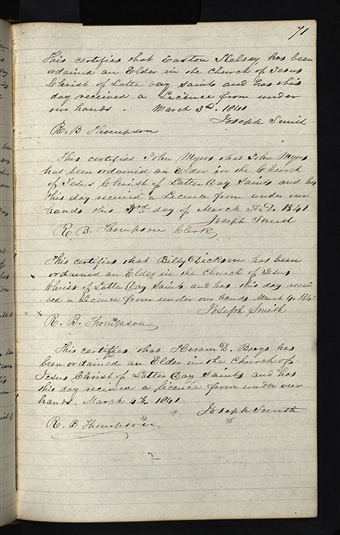 71
This certifies that Easton Kelsey has been
ordained an Elder in the Church of Jesus
Christ of Latter day Saints and has this
day received a Licence from under
our hands. March 3d. 1841
Joseph Smith
R. B. Thompson
This certifies John Myers that John Myers
has been ordained an Elder in the Church
of Jesus Christ of Latter Day Saints and has
this day received a Licence from under our
hands this 3rd day of March A.D. 1841
Joseph Smith
R. B. Thompson Clerk
This certifies that Billy Dickson has been
ordained an Elder in the Church of Jesus
Christ of Latter Day Saints and has this day recei
ved a Licence from under our hands March 4. 184
Joseph Smith
R. B. Thompson
This certifies that Hiram D. Buys has
been ordained an Elder in the Church of
Jesus Christ of Latter Day Saints and has
this day received a licence from under our
hands. March 4th 1841
Joseph Smith
R. B Thompson